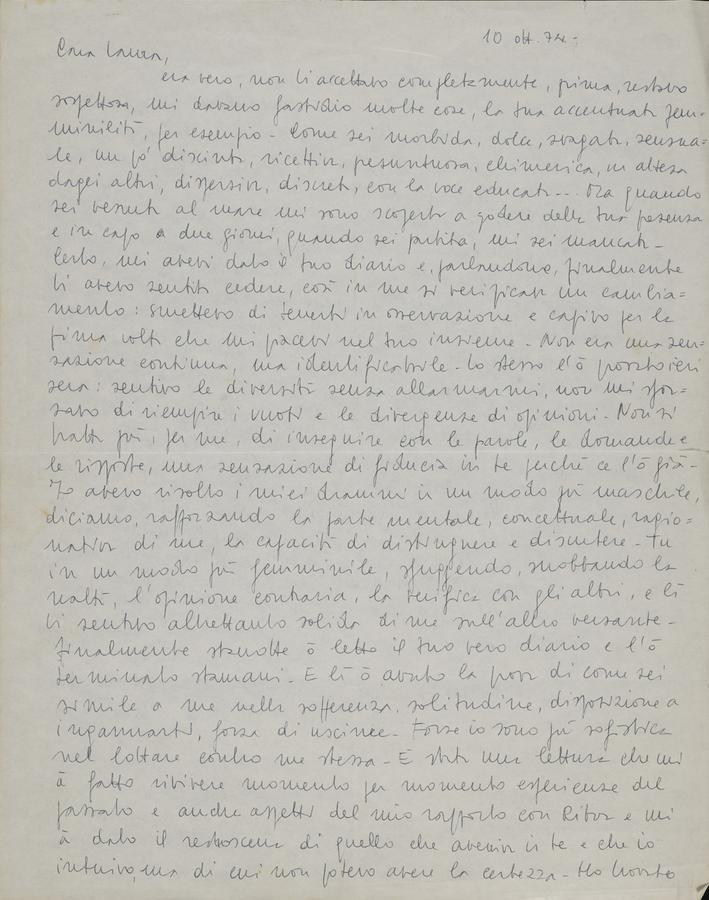 10 ott. 74 -
Cara Laura,
era vero, non ti accettavo completamente, prima, restavo
sospettosa, mi davano fastidio molte cose, la tua accentuata fem=
minilità, per esempio - Come sei morbida, dolce, svagata, sensua=
le, un po' discinta, ricettiva, presuntuosa, chimerica, in attesa
dagli altri, dispersiva, discreta, con la voce educata... Ma quando
sei venuta al mare mi sono scoperta a godere della tua presenza
e in capo a due giorni, quando sei partita, mi sei mancata -
Certo, mi avevi dato il tuo diario e, parlandone, finalmente
ti avevo sentita cedere, così in me si verificava un cambia=
mento: smettevo di tenerti in osservazione e capivo per la
prima volta che mi piacevi nel tuo insieme - Non era una sen=
sazione continua, ma identificabile - Lo stesso l'ò provato ieri
sera: sentivo le diversità senza allarmarmi, non mi sfor=
zavo di riempire i vuoti e le divergenze di opinioni - Non si
tratta più, per me, di inseguire con le parole, le domande e
le risposte, una sensazione di fiducia in te perché ce l'ò già -
Io avevo risolto i miei drammi in un modo più maschile,
diciamo, rafforzando la parte mentale, concettuale, razio=
nativa di me, la capacità di distinguere e discutere - Tu
in un modo più femminile, sfuggendo, snobbando la
realtà, l'opinione contraria, la verifica con gli altri, e ti
ti sentivo altrettanto solida di me sull'altro versante -
Finalmente stanotte ò letto il tuo vero diario e l'ò
terminato stamani - E lì ò avuto la prova di come sei
simile a me nella sofferenza, solitudine, disposizione a
ingannarti, forza di uscirne - Forse io sono più sofistica
nel lottare contro me stessa - È stata una lettura che mi
à fatto rivivere momento per momento esperienze del
passato e anche aspetti del mio rapporto con Ritva e mi
à dato il retroscena di quello che avveniva in te e che io
intuivo, ma di cui non potevo avere la certezza - Ho trovato